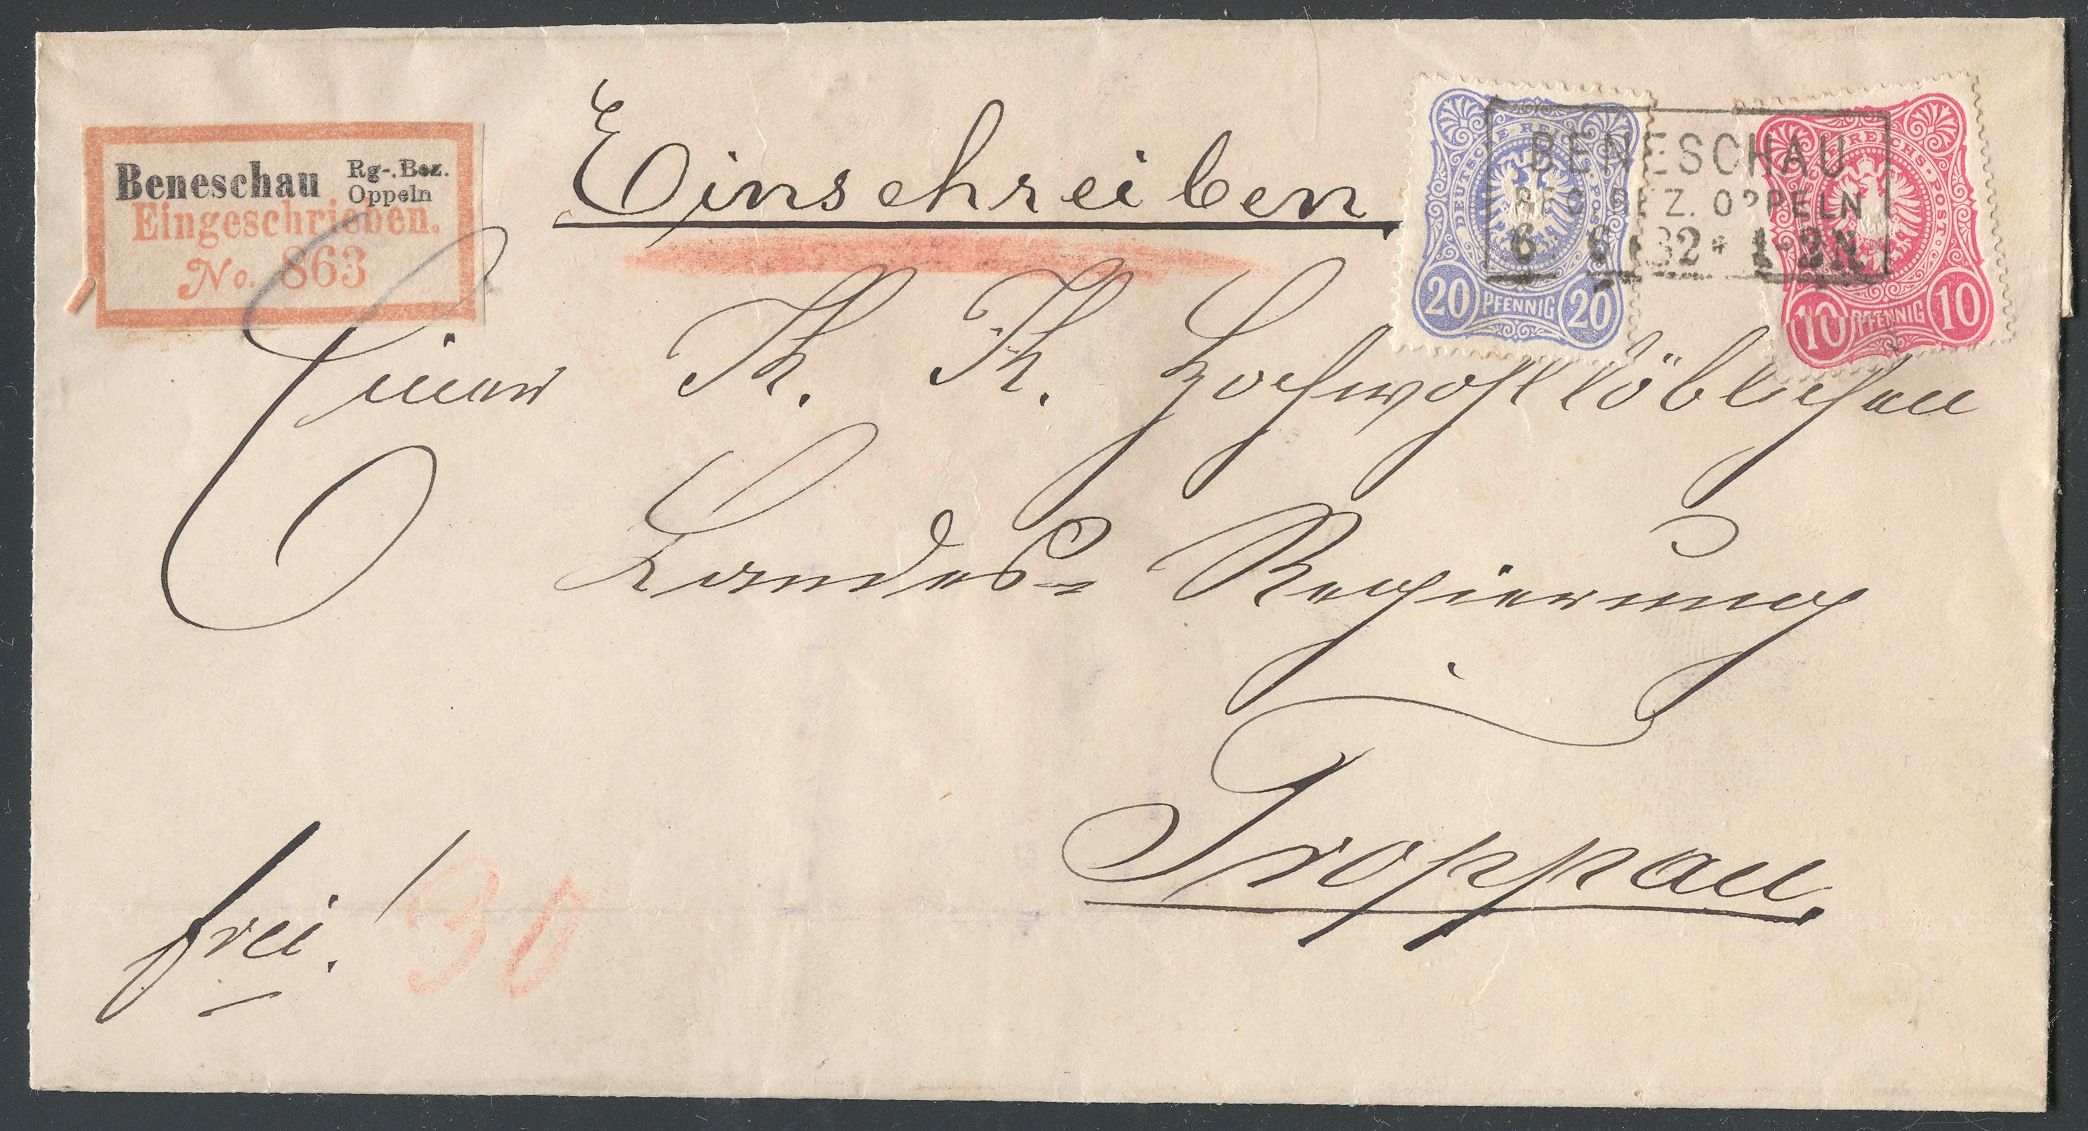 Beneschau Rg-. Bez.
Oppeln
Eingeschrieben.
No. 863
Einschreiben.
DEUTSCHE REICHS-POST
20 PFENNIG 20
DEUTSCHE REICHS-POST
10 PFENNIG 10
BENESCHAU
BEZ. OPPELN
6 82* 1-2N
Einer K. K. Hochwohllöblichen
Landes-Regierung
Troppau.
frei!
30